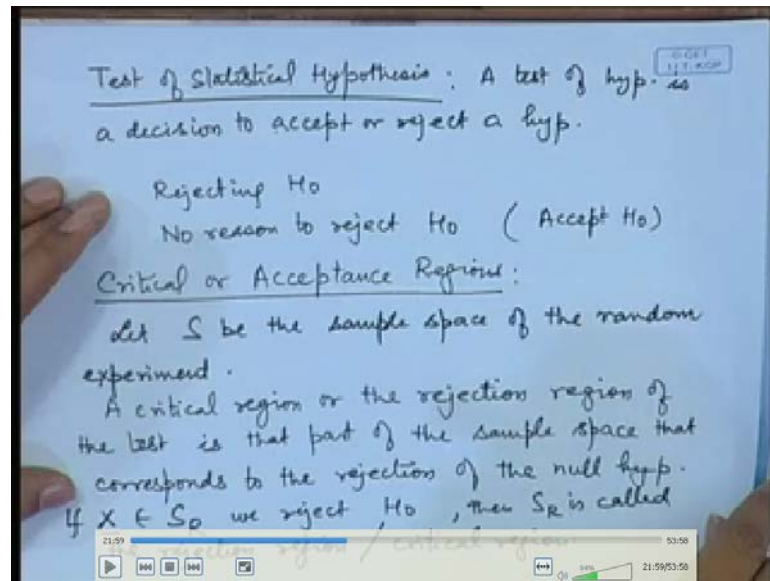 Test of Statistical Hypothesis : A test of hyp. is
a decision to accept or reject a hyp.
Rejecting H0
No reason to reject H0 ( Accept H0 )
Critical or Acceptance Regions :
Let S be the sample space of the random
experiment .
A critical region or the rejection region of
the test is that part of the sample space that
corresponds to the rejection of the null hyp.
If X ∈ SR we reject H0 , then SR is called
the rejection region / critical region
21:59
53:58
94%
21:59/53:58